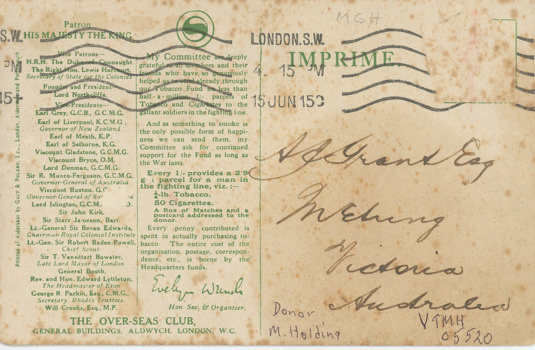 Patron
HIS MAJESTY THE KING
Vice Patrons—
H.R.H. The Duke of Connaught
The Right Hon. Lewis Harcourt,
Secretary of State for the Colonies
Founder and President
Lord Northcliffe.
Vice-Presidents—
Earl Grey, G.C.B., G.C.M.G.
Earl of Liverpool, K.C.M.G.,
Governor of New Zealand
Earl of Meath, K.P.
Earl of Selborne, K.G.
Viscount Gladstone, G.C.M.G.
Viscount Bryce, O.M.
Lord Denman, G.C.M.G.
Sir R. Munro-Ferguson, G.C.M.G.
Governor-General of Australia
Viscount Buxton,
Governor-General of
Lord Islington, G.C.M.G.
Sir John Kirk,
Sir Starr Jameson, Bart.
Lt.-General Sir Bevan Edwards,
Chairman Royal Colonial Institute
Lt.-Gen. Sir Robert Baden-Powell,
Chief Scout
Sir T. Vansittart Bowater,
Late Lord Mayor of London
General Booth.
Rev. and Hon. Edward Lyttelton,
The Headmaster of Eton
George R. Parkin, Esq., C.M.G.,
Secretary, Rhodes Trustees
Will Crooks, Esq., M.P.
My Committee are deeply
grateful to all members and their
friends who have so generously
helped us to send already through
our Tobacco Fund no less than
half-a-million 1/- parcels of
Tobacco and Cigarettes to the
gallant soldiers in the fighting line.
And as something to smoke is
the only possible form of happi-
ness we can send them, my
Committee ask for continued
support for the Fund as long as
the War lasts.
Every 1/- provides a
parcel for a man in
the fighting line, viz. :—
¼-lb. Tobacco.
50 Cigarettes.
A Box of Matches and a
postcard addressed to the
donor.
Every penny contributed is
spent in actually purchasing to-
bacco. The entire cost of the
organisation, postage, correspon-
dence, etc., is borne by the
Headquarters funds.
Evelyn Wrench
Hon. Sec. & Organiser.
THE OVER-SEAS CLUB,
GENERAL BUILDINGS, ALDWYCH, LONDON, W.C.
MGH
S.W.
PM
15
LONDON.S.W.
4. 15 PM
15 JUN 15
IMPRIME
A J Grant Esq
Victoria
Australia
Donor
M. Holding
VTMH
05520